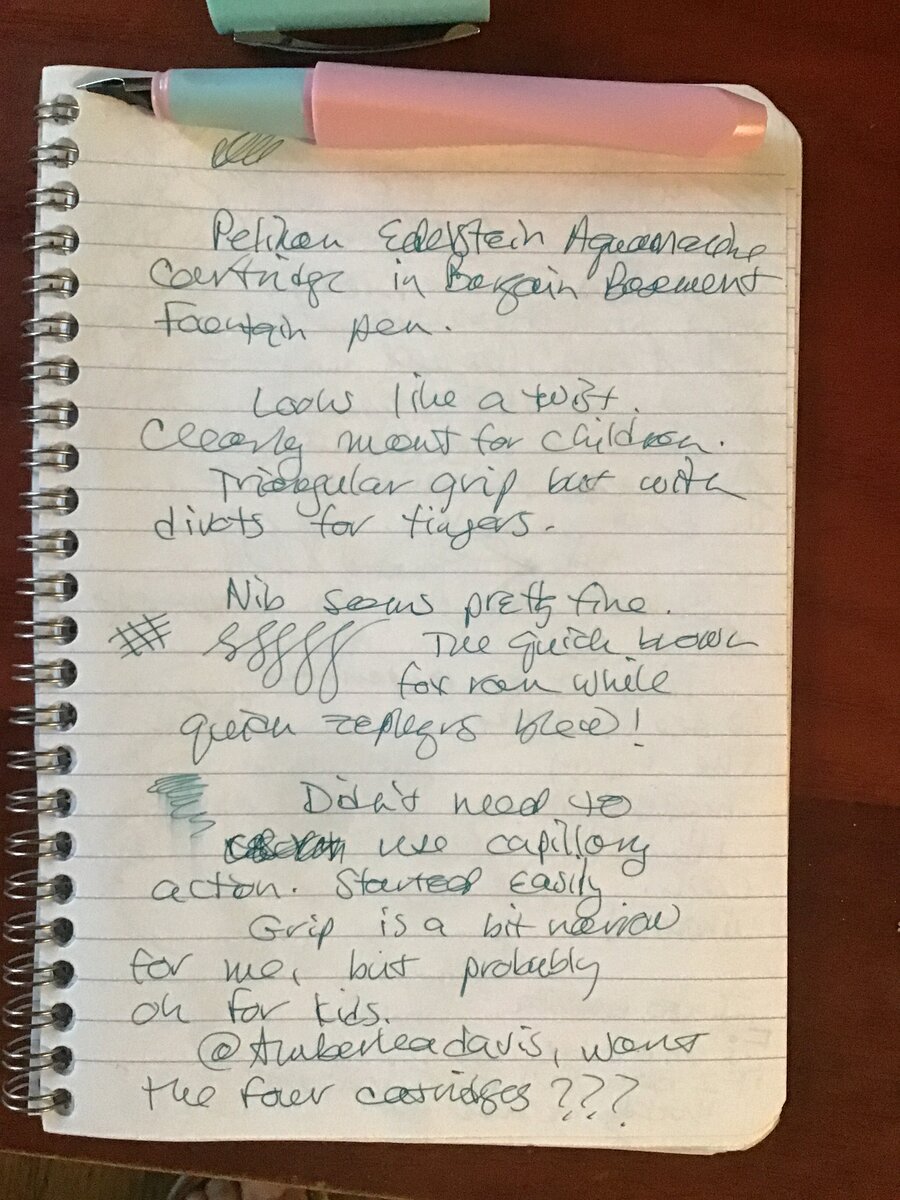 Pelikan Edelstein Aquamarine
Cartridge in Bargain Basement
Fountain pen.
Looks like a twist.
Clearly meant for children.
Triangular grip but with
divots for fingers.
Nib seems pretty fine.
The quick brown
fox ran while
quick zephyrs blew!
Didn't need to
use capillary
action. Started Easily
Grip is a bit narrow
for me, but probably
ok for kids.
@Amberleadavis, want
the four cartridges???